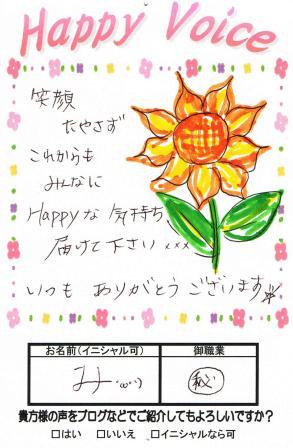 Happy Voice
笑顔
たやさず
これからも
みんなに
Happyな 気持ち
届けて下さい ×××
いつも ありがとう ございます
お名前(イニシャル可) 御職業
み ㊙
貴方様の声をブログなどでご紹介してもよろしいですか?
□はい □いいえ □イニシャルなら可